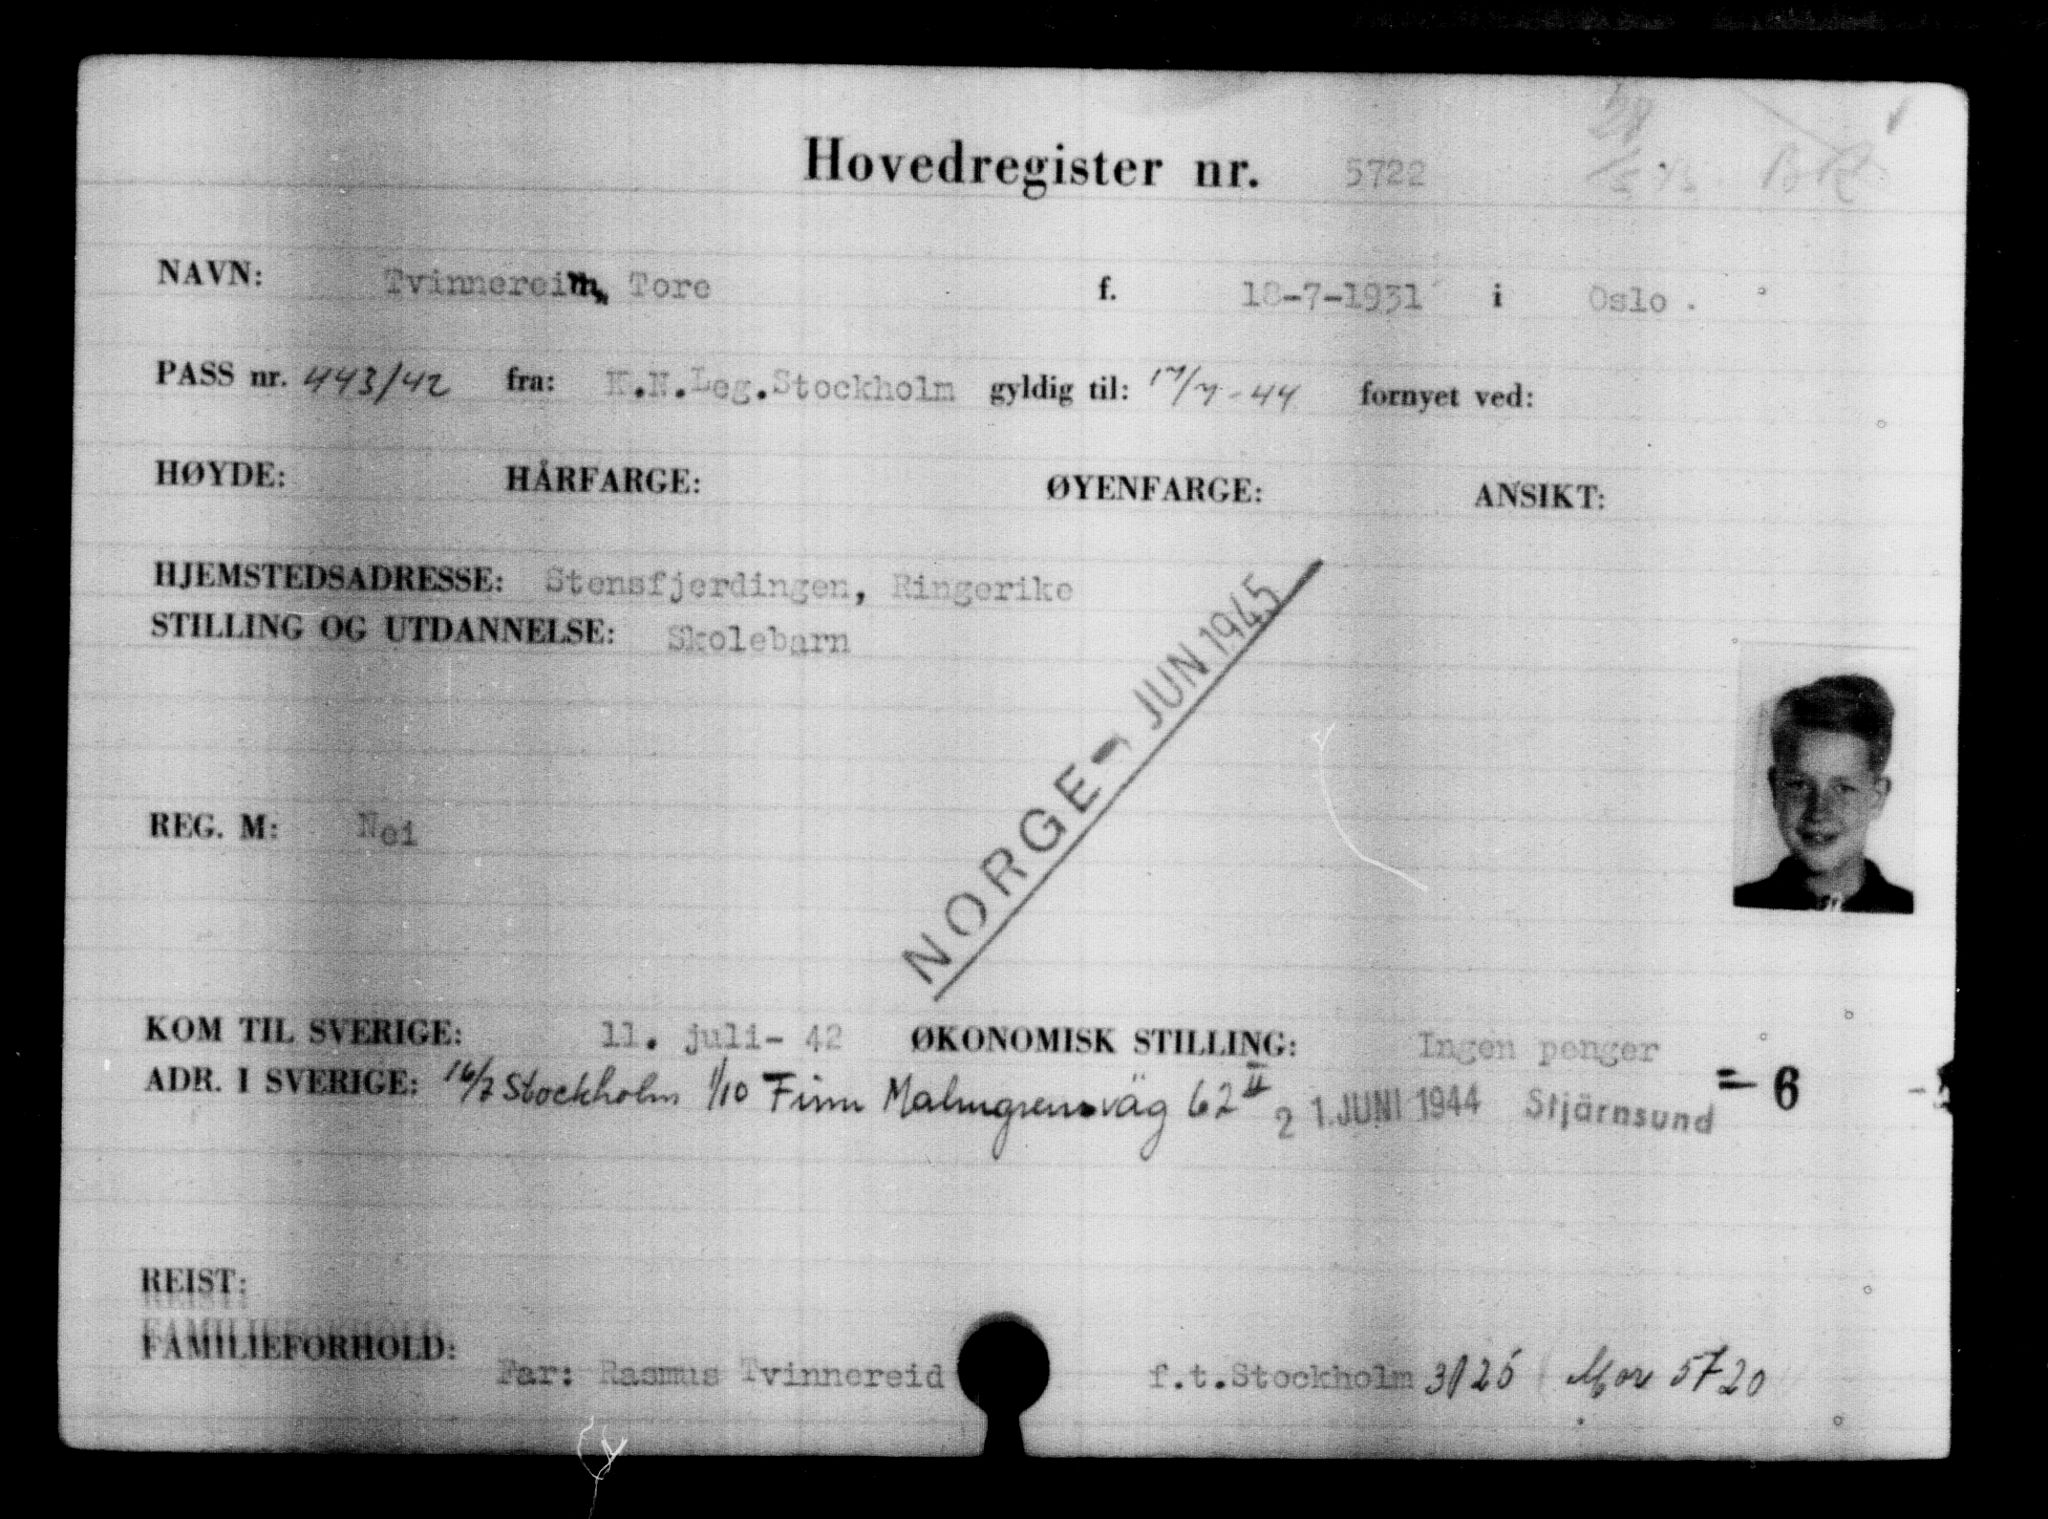 Hovedregister nr. 5722
NAVN: Tvinnereim, Tore f. 18-7-1931 i Oslo.
PASS nr. 443/42 fra: K.N.Leg.Stockholm gyldig til: 17/7-44 fornyet ved:
HØYDE: HÅRFARGE: ØYENFARGE: ANSIKT:
HJEMSTEDSADRESSE: Stensfjerdingen, Ringerike
STILLING OG UTDANNELSE: Skolebarn
NORGE - JUN 1945
REG. M: Nei
KOM TIL SVERIGE: 11. juli- 42 ØKONOMISK STILLING: Ingen penger
ADR. I SVERIGE: 16/7 Stockholm 1/10 Finn Malmgrensväg 62 II 21. JUNI 1944 Stjärnsund = 6
REIST:
FAMILIEFORHOLD: Far: Rasmus Tvinnereid f.t.Stockholm 3125 Mor 5720